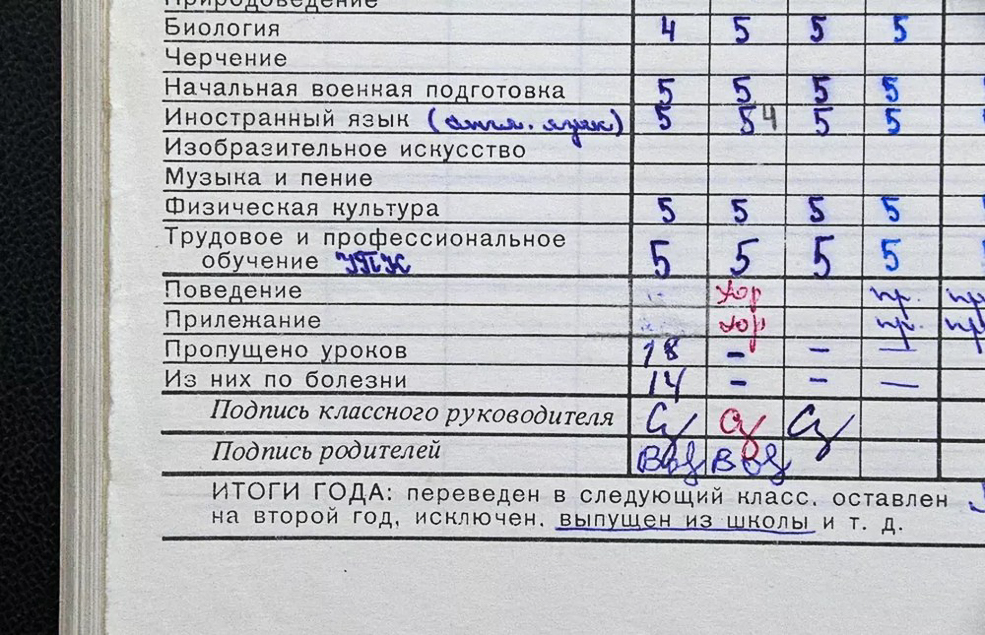 Природоведение
Биология 4 5 5 5
Черчение
Начальная военная подготовка 5 5 5 5
Иностранный язык (англ. язык) 5 54 5 5
Изобразительное искусство
Музыка и пение
Физическая культура 5 5 5 5
Трудовое и профессиональное 5 5 5 5
обучение УПК
Поведение Хор пр. пр
Прилежание хор пр. пр
Пропущено уроков 18 - - —
Из них по болезни 14 - - —
Подпись классного руководителя
Подпись родителей
ИТОГИ ГОДА: переведен в следующий класс, оставлен
на второй год, исключен, выпущен из школы и т. д.